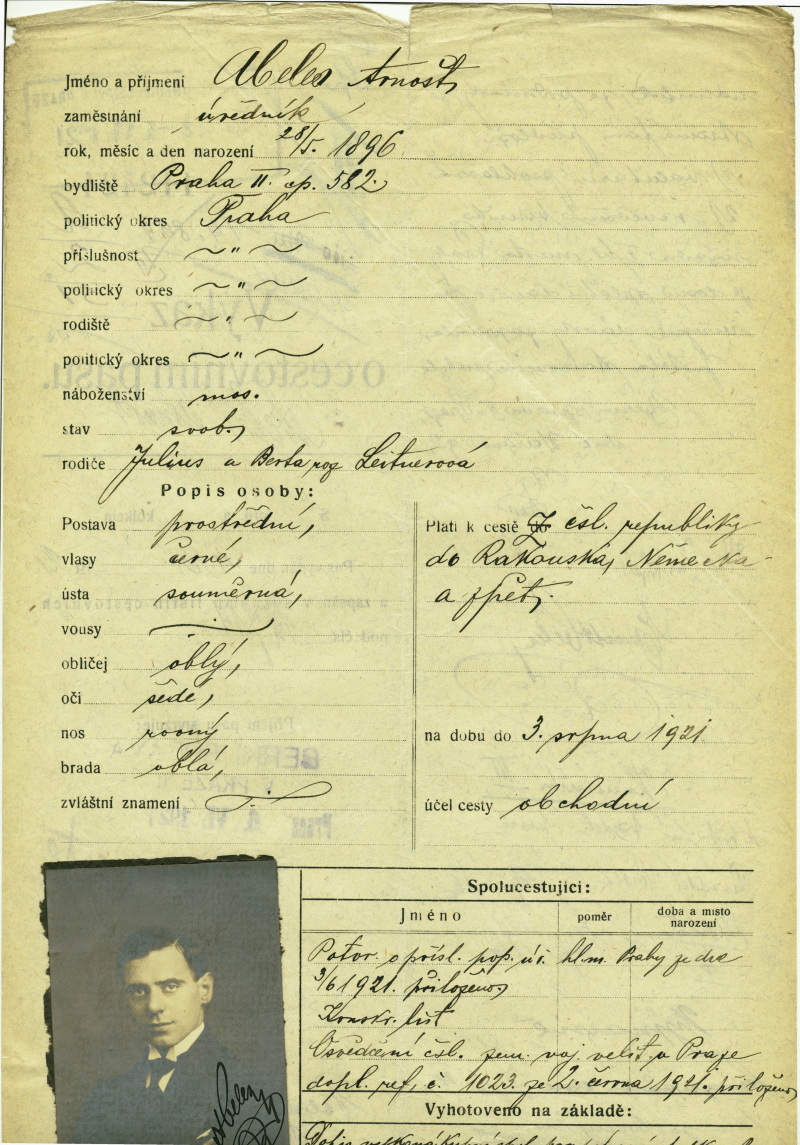 Jméno a příjmení Abeles Arnošt,
zaměstnání úředník
rok, měsíc a den narození 28/5. 1896.
bydliště Praha II. čp. 582.
politický okres Praha
příslušnost ~ " ~
politický okres ~ " ~
rodiště ~ " ~
politický okres ~ " ~
náboženství mos.
stav svob.,
rodiče Julius a Berta roz Leitnerová
Popis osoby:
Postava prostřední,
vlasy černé,
ústa souměrná,
vousy
obličej oblý,
oči šedé,
nos rovný
brada oblá,
zvláštní znamení
Platí k cestě do Z čsl. republiky
do Rakouska, Německa
a zpět,
na dobu do 3. srpna 1921.
účel cesty obchodní
Spolucestující:
Jméno poměr doba a místo narození
Potvr. o přísl. pop. úř. hl. m. Prahy ze dne
3/6 1921. přiloženo,
Konskr. list
Osvědčení čsl. zem. voj. velit. v Praze
dopl. ref. č. 1023. ze 2. června 1921. přiloženo,
Vyhotoveno na základě: